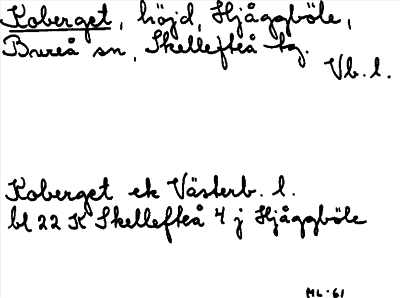 Koberget, höjd, Hjåggböle,
Bureå sn, Skellefteå tg.
Vb. l.
Koberget ek Västerb. l.
bl 22 K Skellefteå 4 j Hjåggböle
ML-61